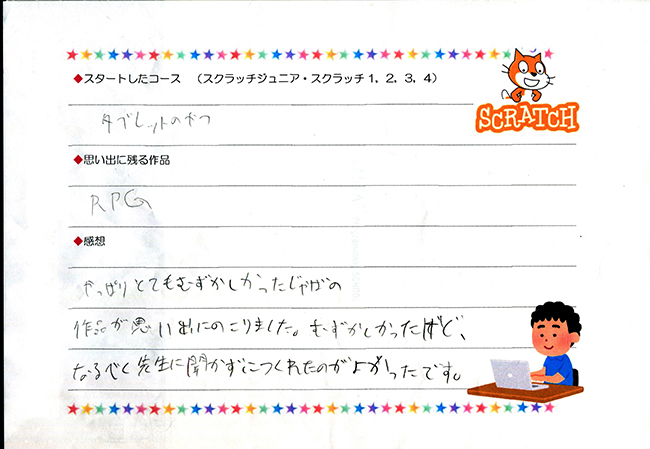 ◆スタートしたコース （スクラッチジュニア・スクラッチ1、2、3、4）
SCRATCH
タブレットのやつ
◆思い出に残る作品
RPG
◆感想
やっぱりとてもむずかしかったじゃがの
作品が思い出にのこりました。むずかしかったけど、
なるべく先生に聞かずにつくれたのがよかったです。